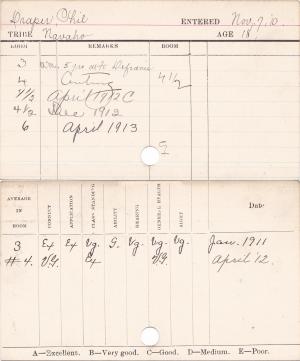 Draper, Phil ENTERED Nov. 7, 10
TRIBE Navaho AGE 18
GRADE REMARKS ROOM
3 5 yrs
4 4 1/2
4 1/2 April 1912 C
4 1/2 Dec 1912
6 April 1913
5
AVERAGE IN ROOM CONDUCT APPLICATION CLASS STANDING ABILITY BEARING GENERAL HEALTH SIGHT Date
3 Ex Ex Vg. G. Vg. Vg. Vg. Jan. 1911
#4. V.G. Ex V.G. April '12.
A—Excellent. B—Very good. C—Good. D—Medium. E—Poor.